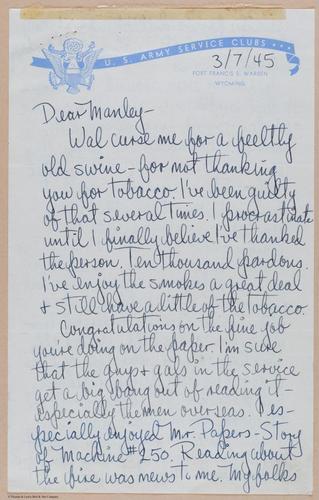 U. S. ARMY SERVICE CLUBS
3/7/45
FORT FRANCIS E. WARREN
WYOMING
Dear Manley-
Wal curse me for a feeltly
old swine - for not thanking
you for tobacco. I've been guilty
of that several times. I procrastinate
until I finally believe I've thanked
the person. Ten thousand pardons.
I've enjoy the smokes a great deal
& still have a little of the tobacco.
Congratulations on the fine job
you're doing on the paper. I'm sure
that the guys & gals in the service
get a big bang out of reading it-
especially the men overseas. I es-
pecially enjoyed Mr. Papers - Story
of Machine #250. Reading about
the fire was news to me. My folks